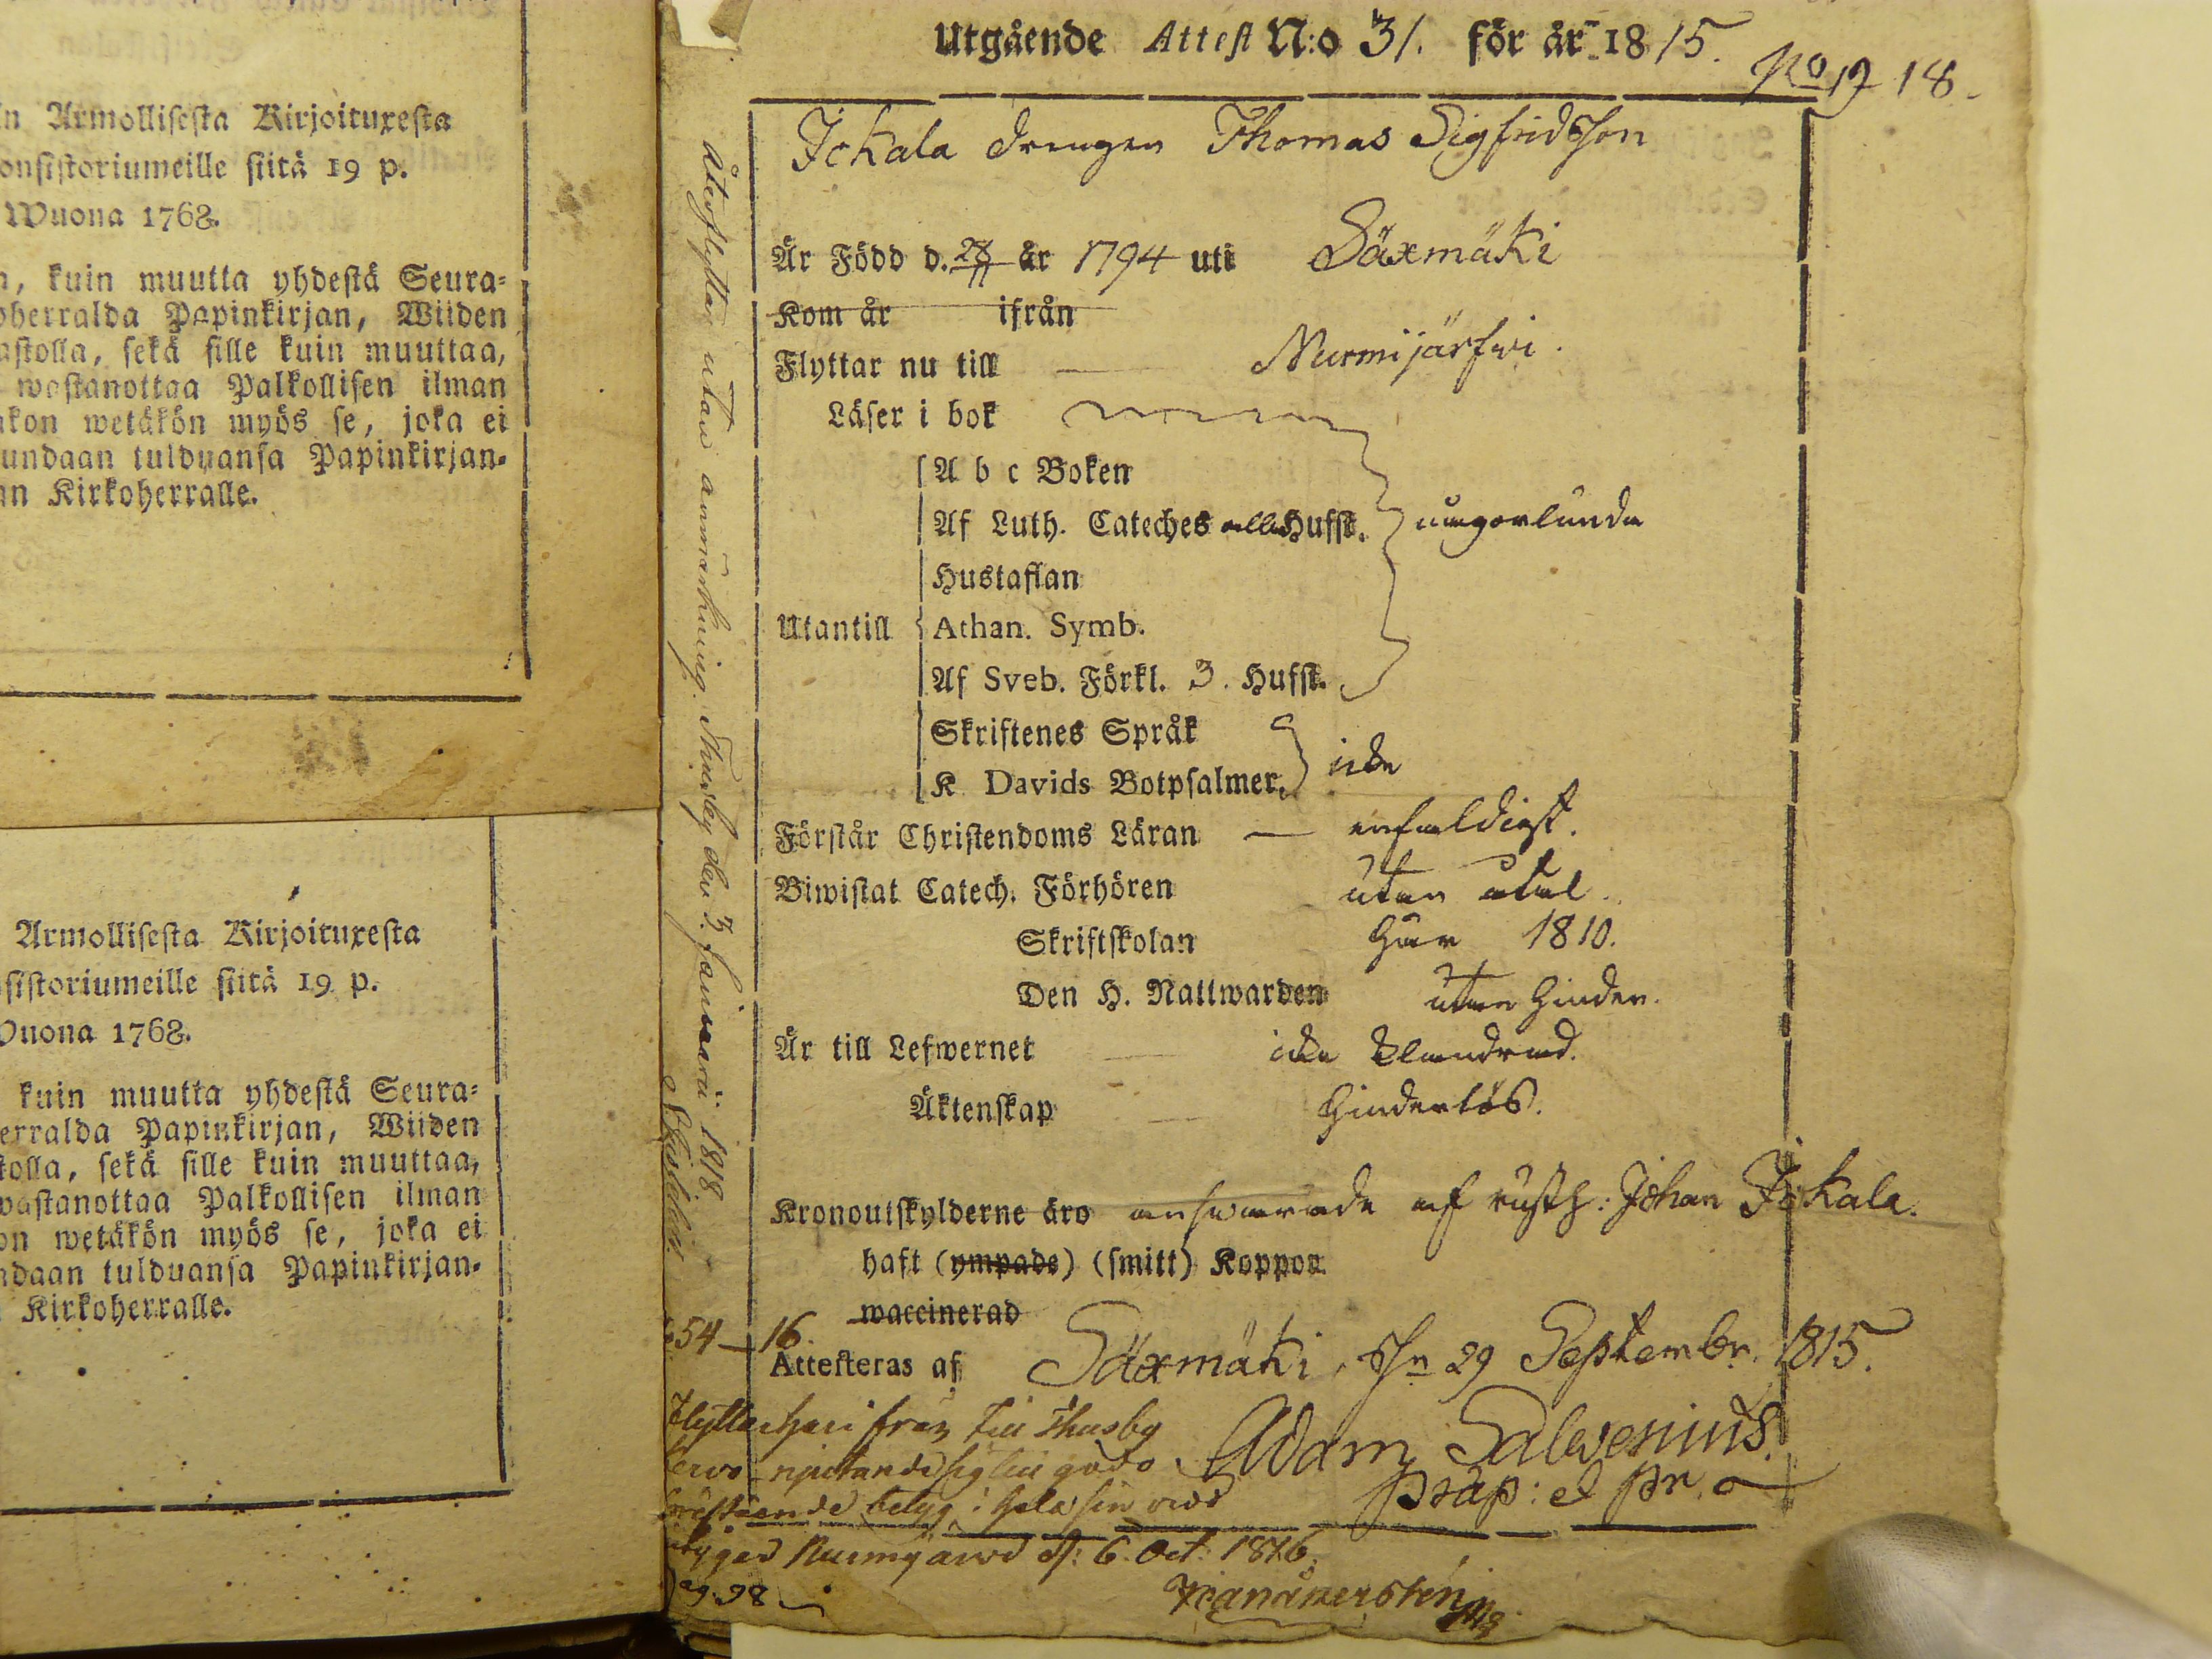 n Armollisesta Kirjoituxesta
onsistoriumeille siitä 19 p.
Wuona 1768.
n, kuin muutta yhdestä Seura-
oherralda Papinkirjan, Wiiden
astolla, sekä sille kuin muuttaa,
wastanottaa Palkollisen ilman
akon wetäkön myös se, joka ei
undaan tulduansa Papinkirjan-
an Kirkoherralle.
Armollisesta Kirjoituxesta
sistoriumeille siitä 19 p.
Wuona 1768.
kuin muutta yhdestä Seura-
erralda Papinkirjan, Wiiden
tolla, sekä sille kuin muuttaa,
wastanottaa Palkollisen ilman
on wetäkön myös se, joka ei
ndaan tulduansa Papinkirjan-
Kirkoherralle.
Utgående Attest N:o 31. för år 1815.
No 19 18.
Jokala drengen Thomas Sigfridsson
Är Född d. 28/11 år 1794 uti Säxmäki
Kom år ifrån
Flyttar nu till Nurmijärfwi.
Läser i bok
A b c Boken
Af Luth. Cateches alla Hufst. någorlunda
Hustaflan
Utantill Athan. Symb.
Af Sveb. Förkl. 3. Hufst.
Skriftenes Språk
K. Davids Botpsalmer. icke
Förstår Christendoms Läran — enfaldigt.
Biwistat Catech. Förhören utan åtal.
Skriftskolan här 1810.
Den H. Nattwarden utan hinder.
Är till Lefwernet icke klandrad.
Äktenskap hinderlös.
Kronoutskylderne äro answarade af rusth: Johan Jokala.
haft (ympade) (smitt) Koppor.
waccinerad
54 — 16.
Attesteras af Säxmäki, dn 29 Septembr. 1815.
Adam Salvenius.
präp: et pr.
Flyttar härifrån till Thusby
njutande sig till godo
föreståendе betyg i hela sin vid
Nurmijärvi d: 6 Oct: 1816.
pag. 98
Återflyttar utan anmärkning. Thusby den 3. Januarii 1818